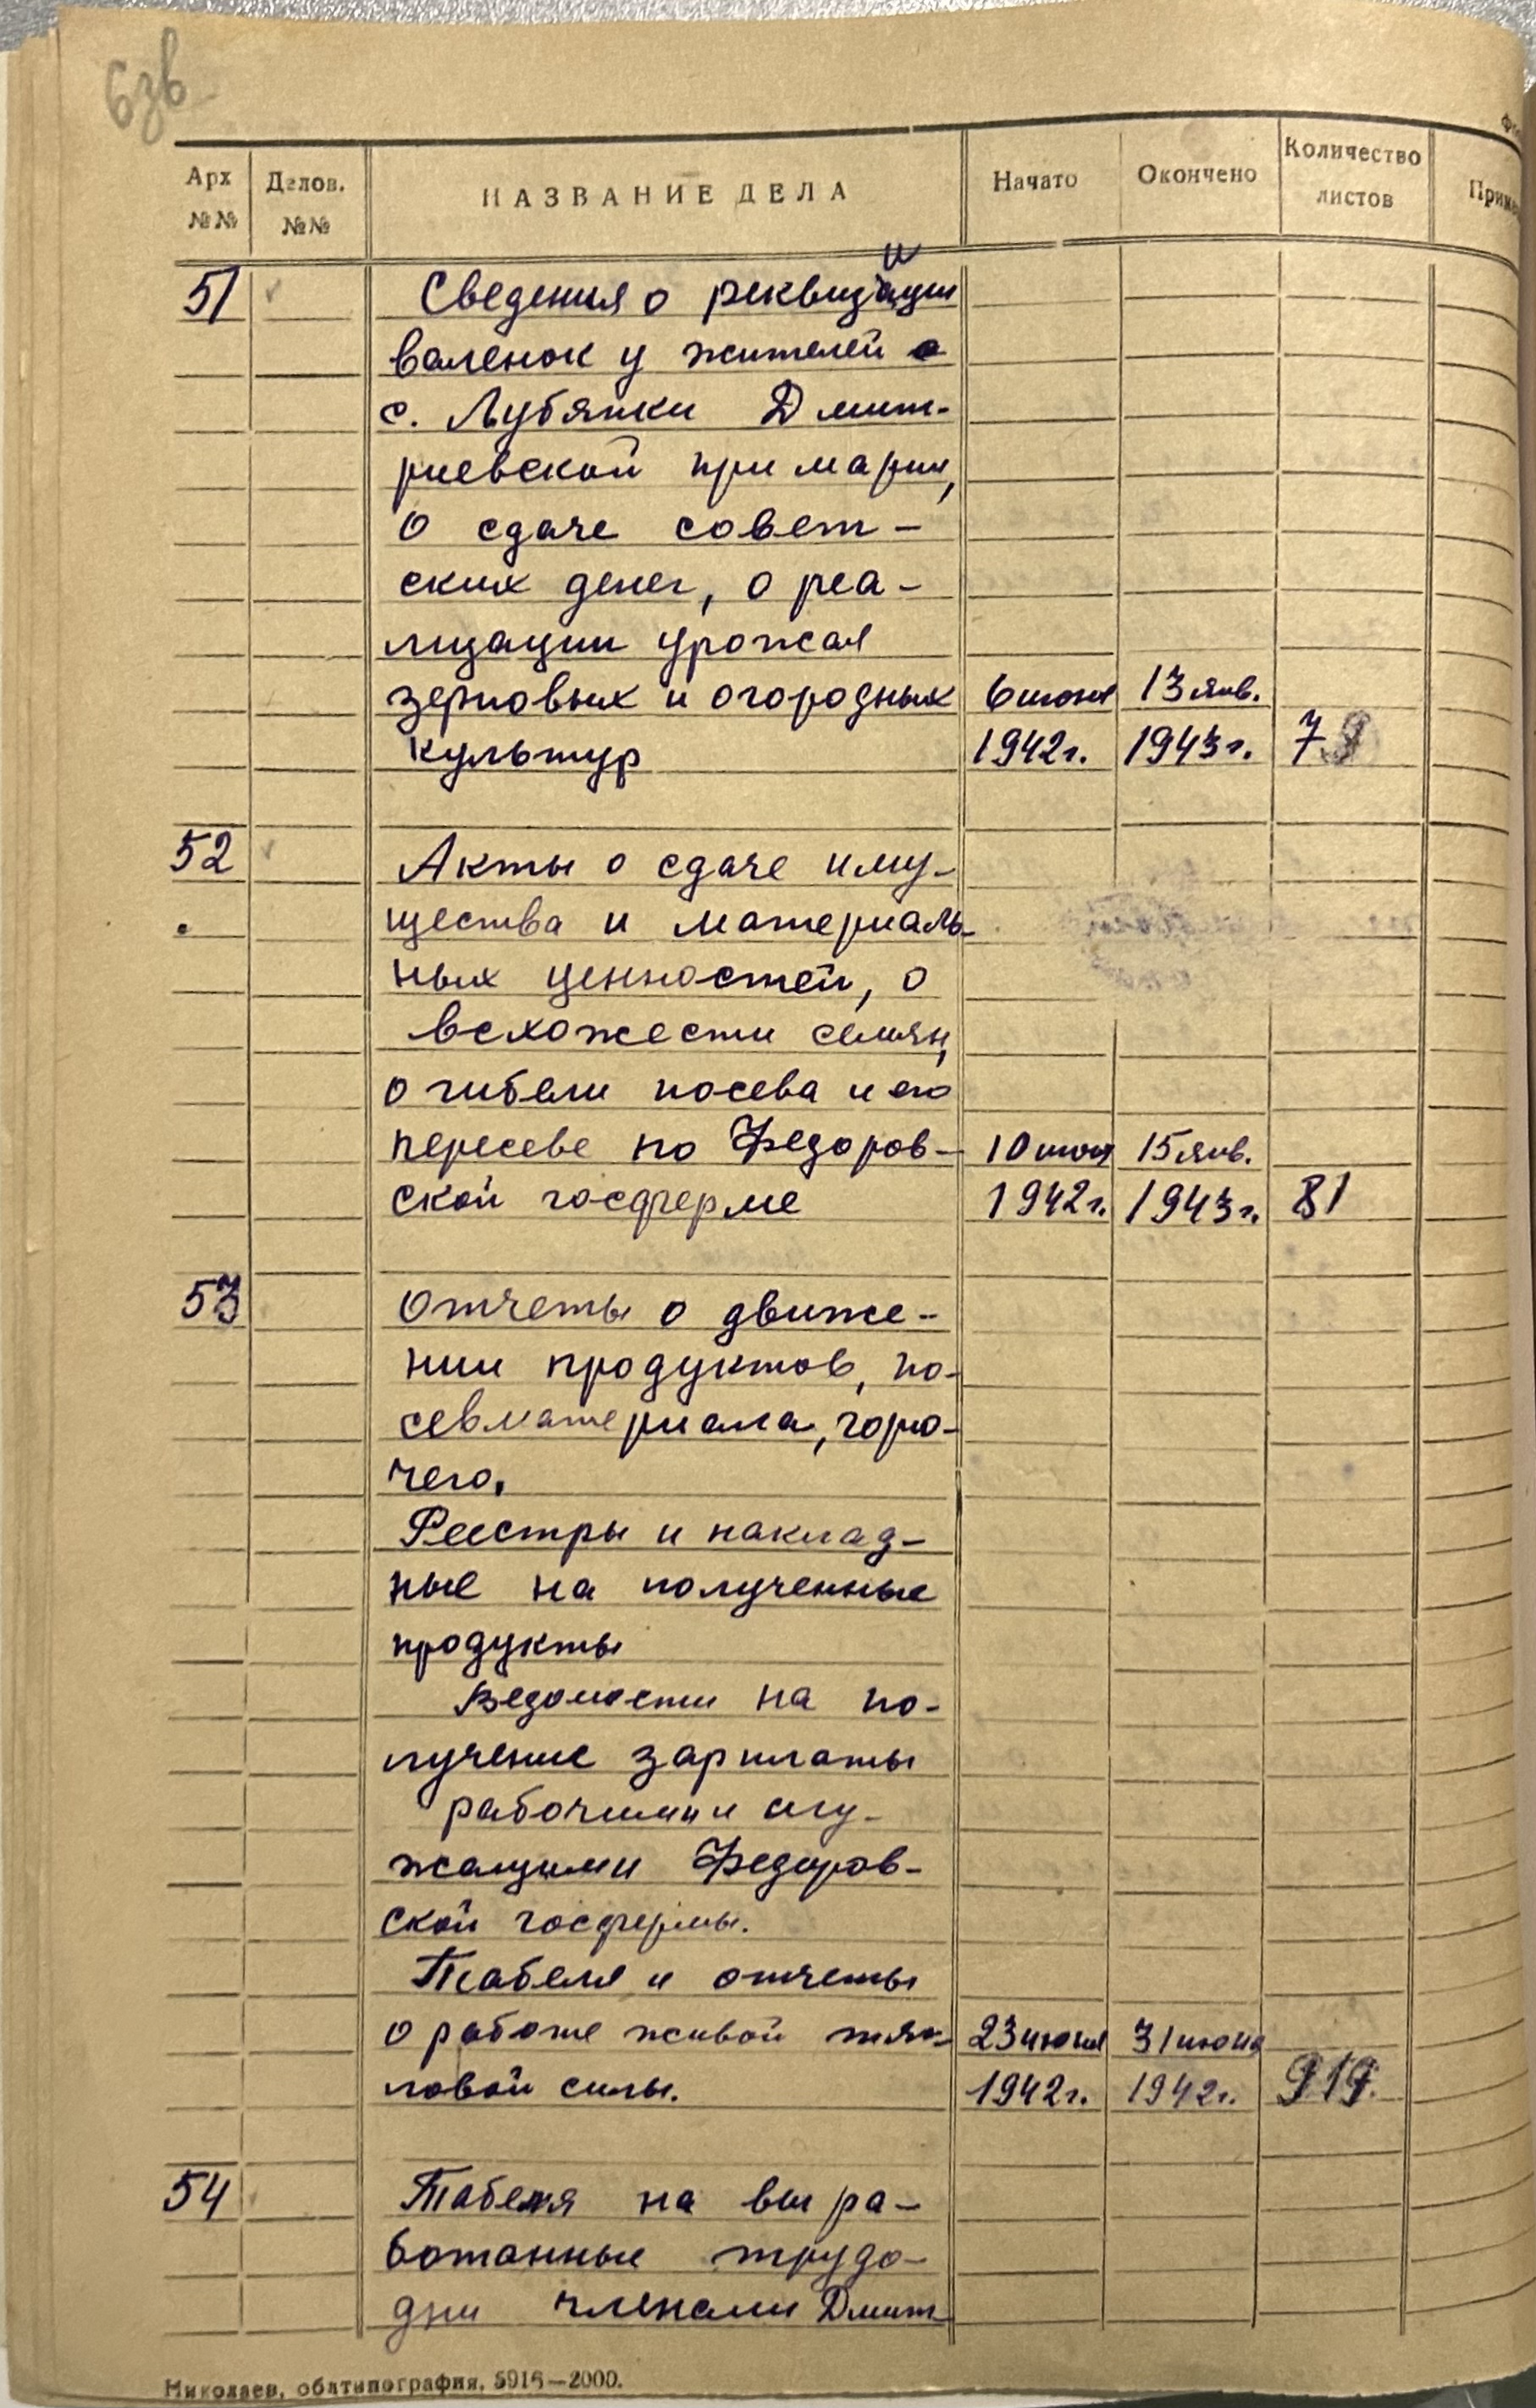 6зв
Арх №№ Делов. №№ НАЗВАНИЕ ДЕЛА Начато Окончено Количество листов
51 Сведения о реквизиции
валенок у жителей
с. Лубянки Дмит-
риевской примарии,
о сдаче совет-
ских денег, о реа-
лизации урожая
зерновых и огородных 6 июня 13 янв.
культур 1942г. 1943г. 79
52 Акты о сдаче иму-
щества и материаль-
ных ценностей, о
всхожести семян,
о гибели посева и его
пересеве по Федоров- 15 янв.
ской госферме 1942г. 1943г. 81
53 Отчеты о движе-
нии продуктов, по-
севматериала, горю-
чего.
Реестры и наклад-
ные на полученные
продукты
Ведомости на по-
лучение зарплаты
рабочими и слу-
жащими Федоров-
ской госфермы.
Табеля и отчеты
о работе живой тяг- 23 июня 31 июня
ловой силы. 1942г. 1942г. 919
54 Табеля на выра-
ботанные трудо-
дни членами Дмит-
Николаев, облтипография, 5916—2000.